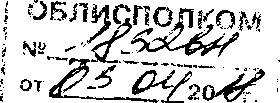 ОБЛИСПОЛКОМ
№ 1852вн
от 05 04 2018 г.